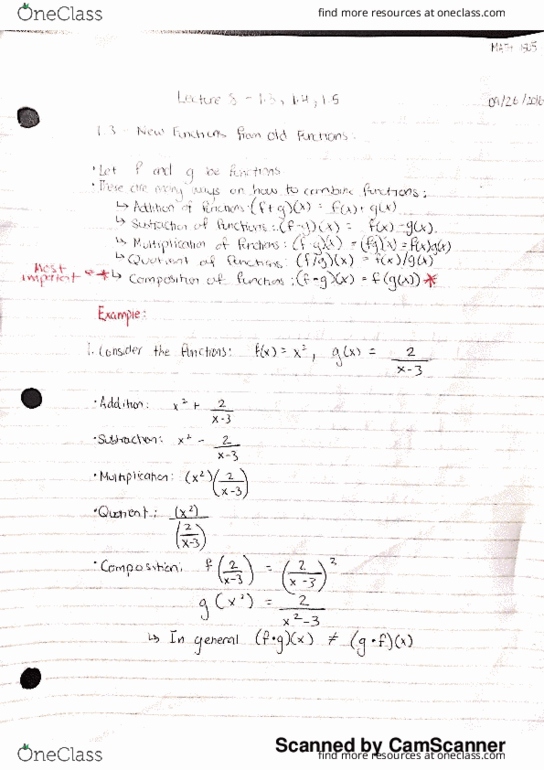 OneClass
find more resources at oneclass.com
MATH 1505
Lecture 8 - 1.3, 1.4, 1.5
09/26/2016
1.3 - New Functions from old Functions:
• Let f and g be functions
• These are many ways on how to combine functions:
↳ Addition of functions: (f+g)(x) = f(x) + g(x)
↳ Subtraction of functions: (f-g)(x) = f(x) - g(x).
↳ Multiplication of functions: (f·g)(x) = (fg)(x) = f(x)g(x)
↳ Quotient of functions: (f/g)(x) = f(x)/g(x)
Most important * ↳ Composition of functions: (f∘g)(x) = f(g(x)) *
Example:
1. Consider the functions: f(x) = x², g(x) = 2/(x-3)
• Addition: x² + 2/(x-3)
• Subtraction: x² - 2/(x-3)
• Multiplication: (x²)(2/(x-3))
• Quotient: (x²)/(2/(x-3))
• Composition: f(2/(x-3)) = (2/(x-3))²
g(x²) = 2/(x²-3)
↳ In general (f∘g)(x) ≠ (g∘f)(x)
Scanned by CamScanner
OneClass
find more resources at oneclass.com